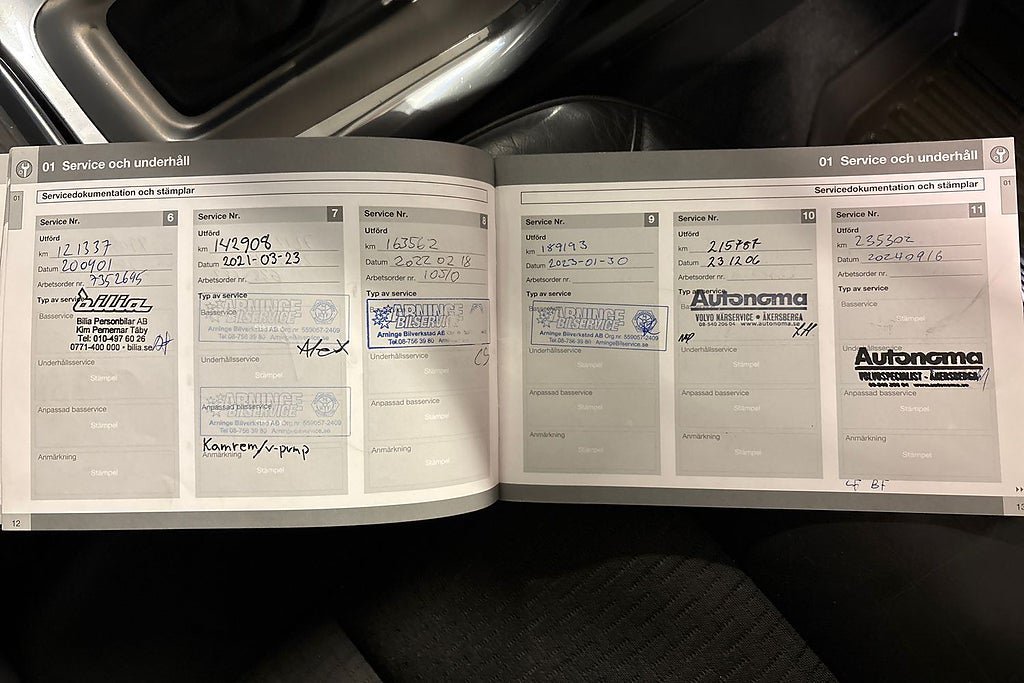 01 Service och underhåll
01
Servicedokumentation och stämplar
Service Nr. 6
Utförd
km 121337
Datum 200901
Arbetsorder nr. 7352695
Typ av service
bilia
Basservice
Bilia Personbilar AB
Kim Pernemar Täby
Tel: 010-497 60 26
0771-400 000 • bilia.se
Underhållsservice
Stämpel
Anpassad basservice
Stämpel
Anmärkning
Stämpel
12
Service Nr. 7
Utförd
km 142908
Datum 2021-03-23
Arbetsorder nr.
Typ av service
ARNINGE
BILSERVICE
Arninge Bilverkstad AB Org.nr 559057-2409
Tel.08-756 39 80 Arningebilservice.se
Alex
Underhållsservice
Stämpel
Anpassad basservice
ARNINGE
BILSERVICE
Arninge Bilverkstad AB Org.nr 559057-2409
Tel.08-756 39 80 Arningebilservice.se
Kamrem/v-pump
Anmärkning
Stämpel
Service Nr. 8
Utförd
km 163562
Datum 2022 02 18
Arbetsorder nr.
Typ av service
ARNINGE
BILSERVICE
Arninge Bilverkstad AB
Tel.08-756 39 80
Underhållsservice
Stämpel
Anpassad basservice
Stämpel
Anmärkning
Stämpel
01 Service och underhåll
01
Servicedokumentation och stämplar
Service Nr. 9
Utförd
km 189193
Datum 2023-01-30
Arbetsorder nr.
Typ av service
ARNINGE
BILSERVICE
Arninge Bilverkstad AB Org.nr 559057-2409
Tel.08-756 39 80 Arningebilservice.se
Underhållsservice
Stämpel
Anpassad basservice
Stämpel
Anmärkning
Stämpel
Service Nr. 10
Utförd
km 215787
Datum 231206
Arbetsorder nr.
Typ av service
Autonoma
VOLVO NÄRSERVICE • ÅKERSBERGA
08-540 206 04 www.autonoma.se
Underhållsservice
Stämpel
Anpassad basservice
Stämpel
Anmärkning
Stämpel
Service Nr. 11
Utförd
km 235302
Datum 20240916
Arbetsorder nr.
Typ av service
Basservice
Stämpel
Underhållsservice
Autonoma
VOLVOSPECIALIST - ÅKERSBERGA
Anpassad basservice
Stämpel
Anmärkning
Stämpel
BF